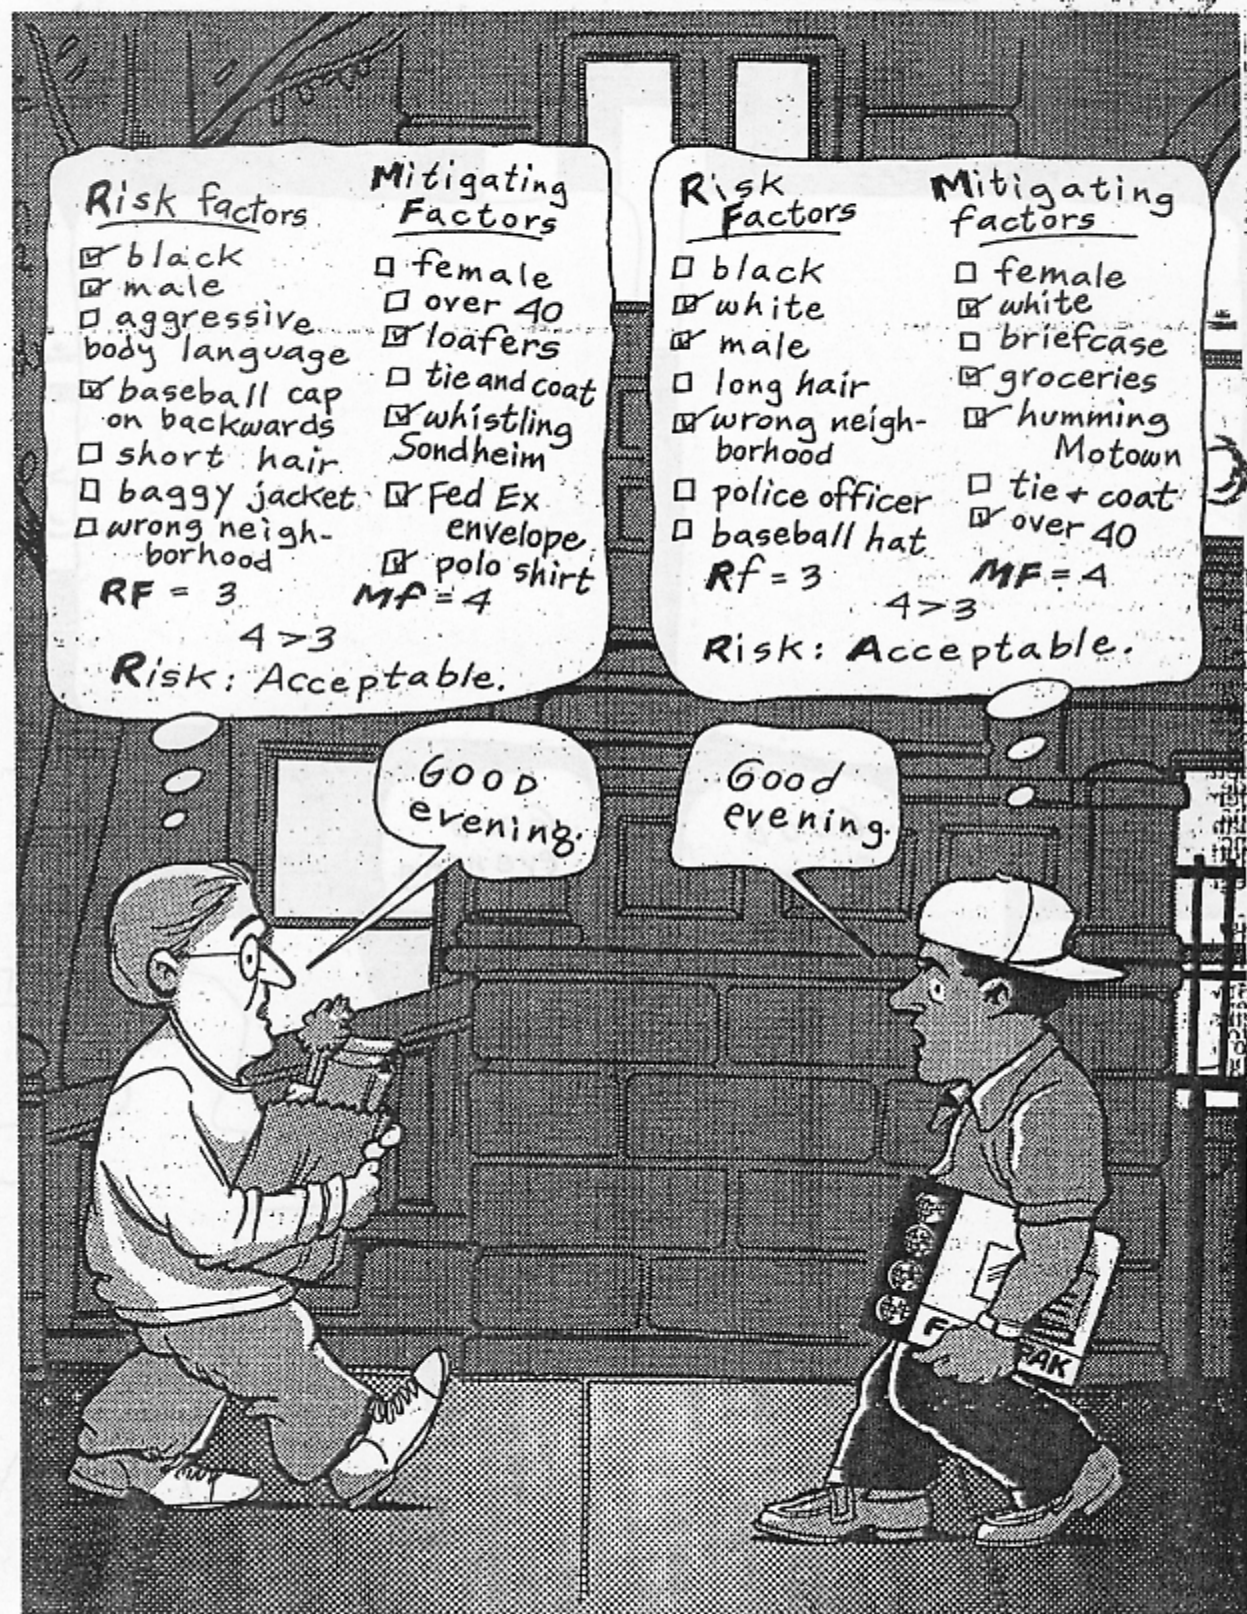 Risk factors
☑ black
☑ male
☐ aggressive
body language
☑ baseball cap
on backwards
☐ short hair
☐ baggy jacket
☐ wrong neigh-
borhood
RF = 3
Mitigating
Factors
☐ female
☐ over 40
☑ loafers
☐ tie and coat
☑ whistling
Sondheim
☑ Fed Ex
envelope
☑ polo shirt
Mf = 4
4 > 3
Risk: Acceptable.
Risk
Factors
☐ black
☑ white
☑ male
☐ long hair
☑ wrong neigh-
borhood
☐ police officer
☐ baseball hat
Rf = 3
Mitigating
factors
☐ female
☑ white
☐ briefcase
☑ groceries
☑ humming
Motown
☐ tie + coat
☑ over 40
MF = 4
4 > 3
Risk: Acceptable.
GOOD
evening.
Good
evening.
F PAK